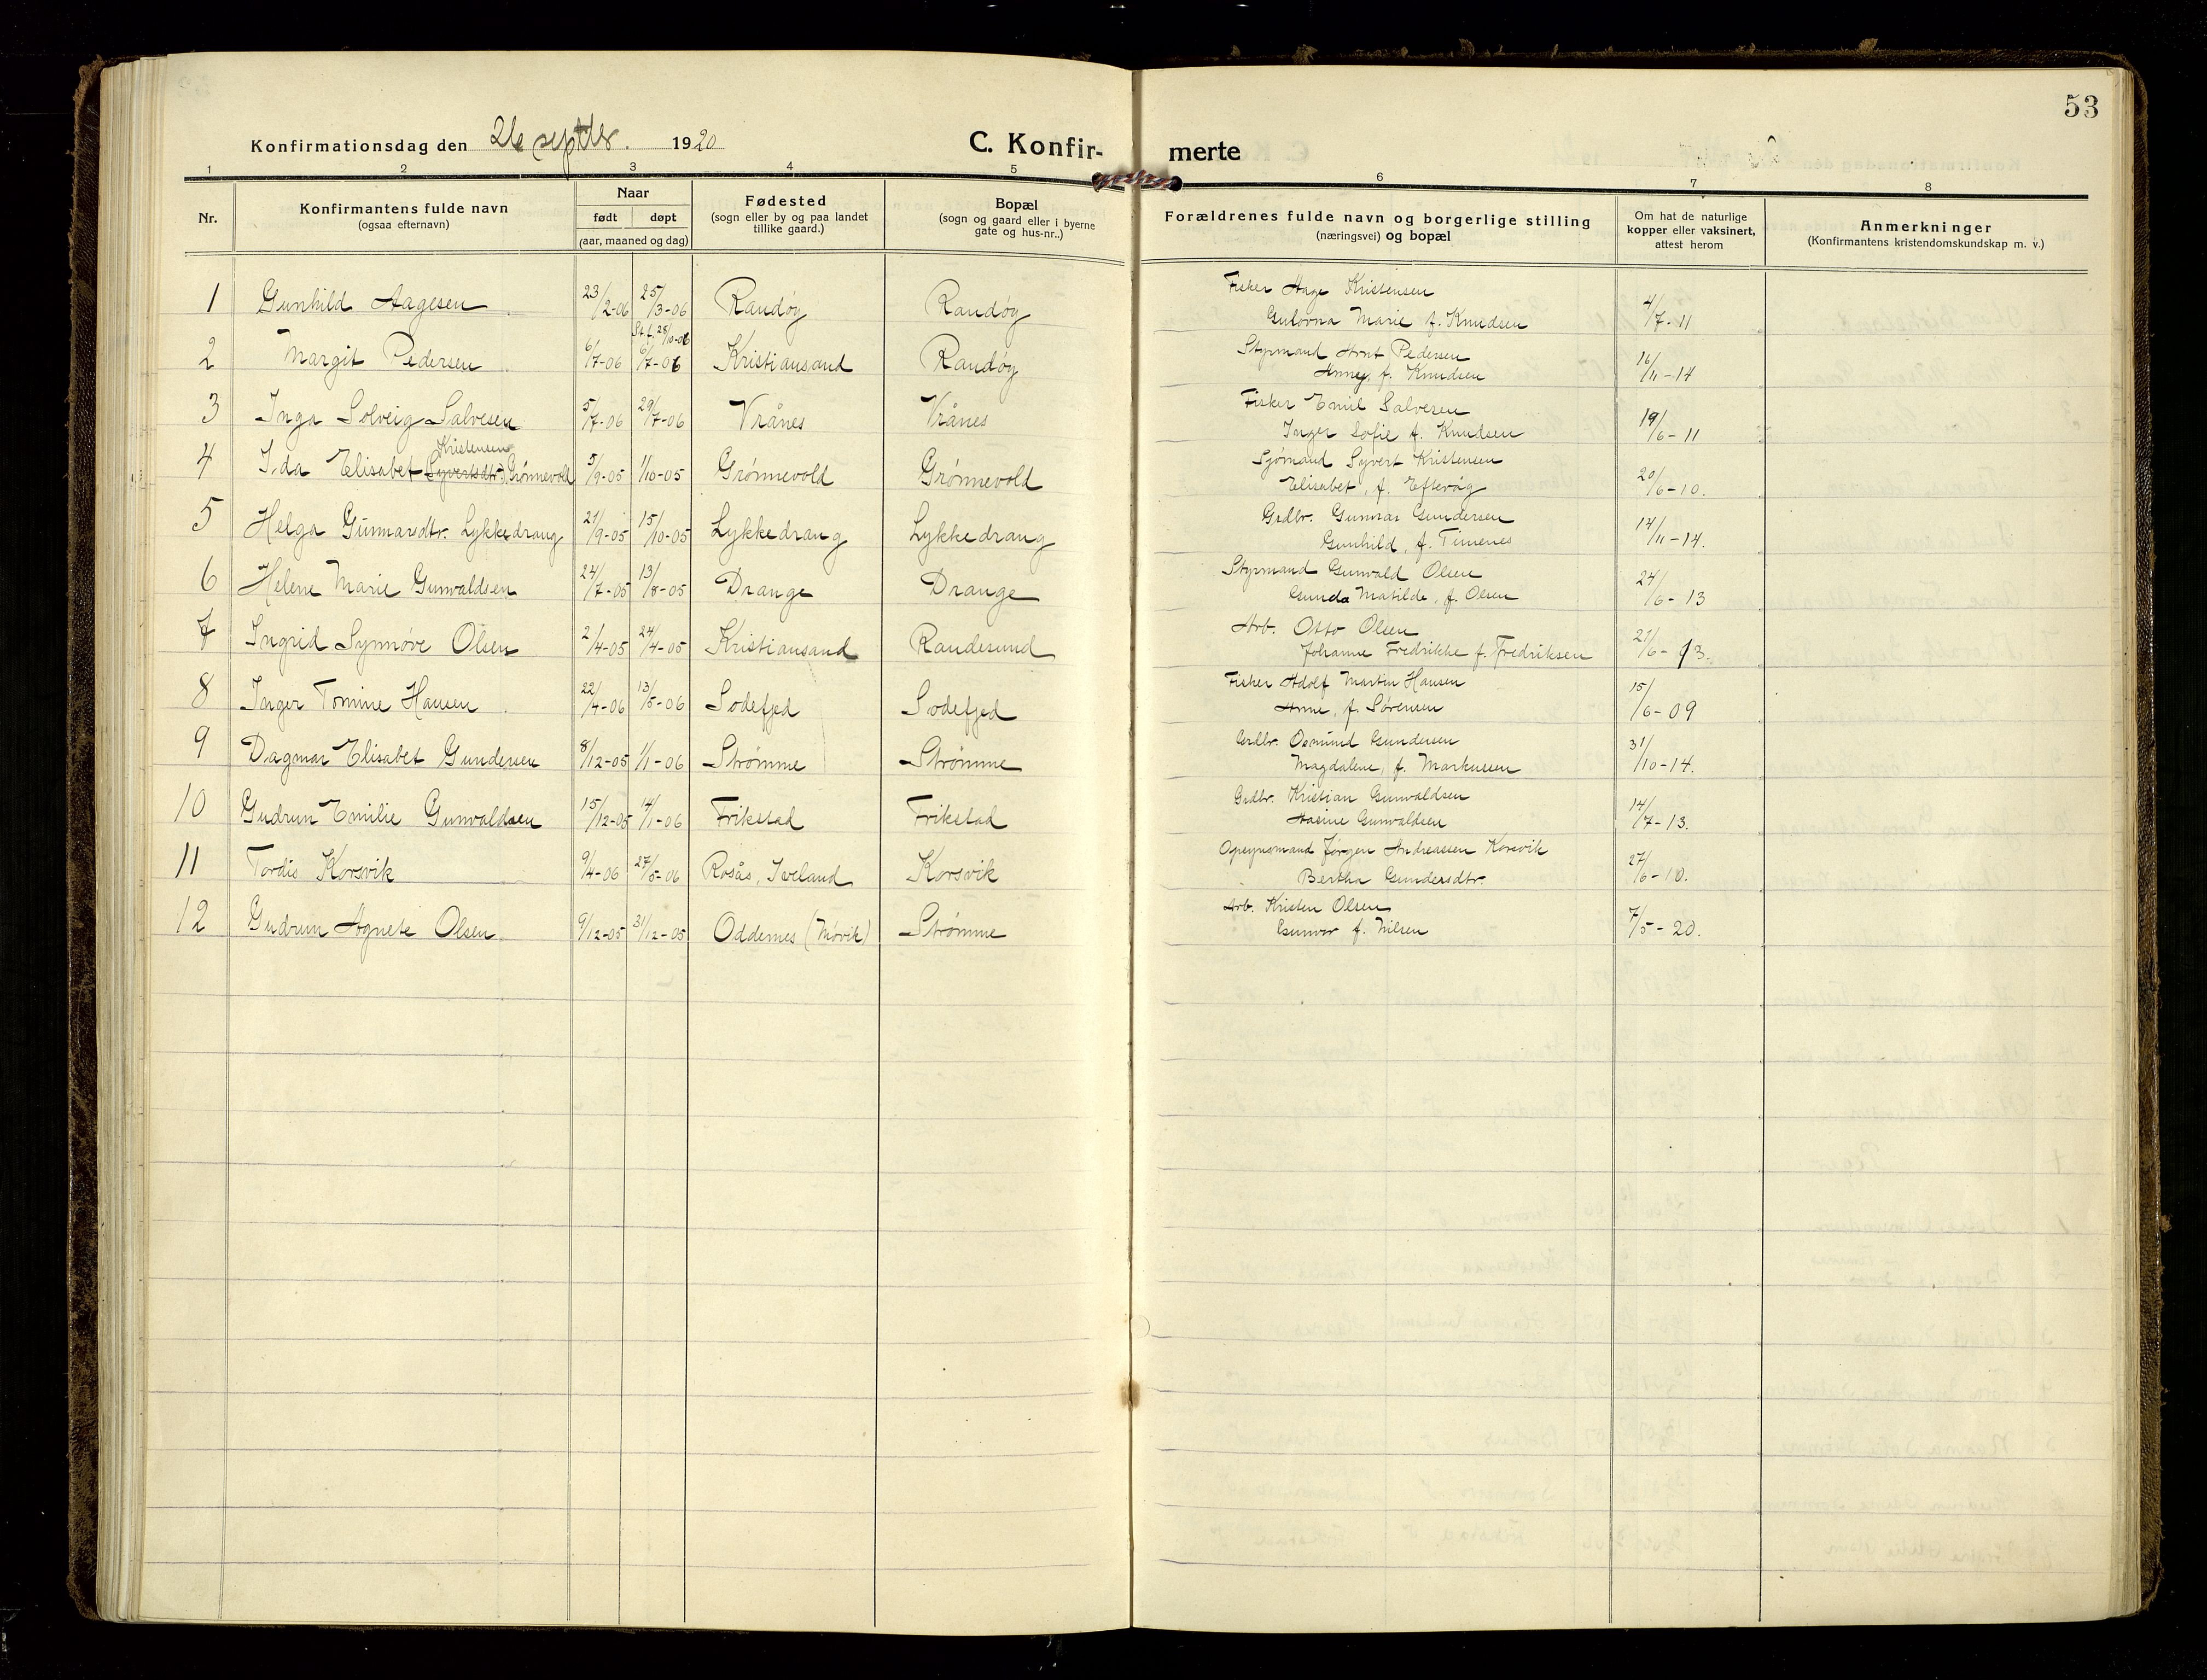 53
Konfirmationsdag den 26 septbr. 1920
C. Konfir-merte
1 2 3 4 5 6 7 8
Nr.
Konfirmantens fulde navn
(ogsaa efternavn)
Naar
født døpt
(aar, maaned og dag)
Fødested
(sogn eller by og paa landet
tillike gaard.)
Bopæl
(sogn og gaard eller i byerne
gate og hus-nr..)
Forældrenes fulde navn og borgerlige stilling
(næringsvei) og bopæl
Om hat de naturlige
kopper eller vaksinert,
attest herom
Anmerkninger
(Konfirmantens kristendomskundskap m. v.)
1 Gunhild Aagesen 23/2-06 25/3-06 Randøy Randøy Fisker Aage Kristensen 4/7-11
Marie f. Knudsen
St.f. 28/10-06
2 Margit Pedersen 6/7-06 6/7-06 Kristiansand Randøy Styrmand Arnt Pedersen 16/11-14
f. Knudsen
3 Inga Solveig Salvesen 5/7-06 29/7-06 Vrånes Vrånes Fisker Emil Salvesen 19/6-11
Inger Sofie f. Knudsen
Kristensen
4 Ida Elisabet Syvertsdtr. Grønnevold 5/9-05 1/10-05 Grønnevold Grønnevold Sjømand Syvert Kristensen 20/6-10.
Elisabet, f. Eftevåg
5 Helga Gunnarsdtr. Lykkedrang 21/9-05 15/10-05 Lykkedrang Lykkedrang Grdbr. Gunnar Gundersen 14/11-14.
Gunhild, f. Timenes
6 Helene Marie Gunvaldsen 24/7-05 13/8-05 Drange Drange Styrmand Gunvald Olsen 24/6-13
Gunda Matilde, f. Olsen
7 Ingrid Synnøve Olsen 2/4-05 24/4-05 Kristiansand Randesund Arb. Otto Olsen 21/6-13.
Johanne Fredrikke f. Fredriksen
8 Inger Tomine Hansen 22/4-06 13/5-06 Sodefjed Sodefjed Fisker Adolf Martin Hansen 15/6-09
Anne, f. Sørensen
9 Dagmar Elisabet Gundersen 8/12-05 1/1-06 Strømme Strømme Grdbr. Osmund Gundersen 31/10-14.
Magdalene, f. Markussen
10 Gudrun Emilie Gunvaldsen 15/12-05 14/1-06 Frikstad Frikstad Grdbr. Kristian Gunvaldsen 14/7-13.
Hasine Gunvaldsen
11 Tordis Korsvik 9/4-06 27/5-06 Rosås, Iveland Korsvik Opsynsmand Jørgen Andreassen Korsvik 27/6-10.
Bertha Gundersdtr.
12 Gudrun Agnete Olsen 9/12-05 31/12-05 Oddernes (Møvik) Strømme Arb. Kristen Olsen 7/5-20.
Gunvor f. Nilsen